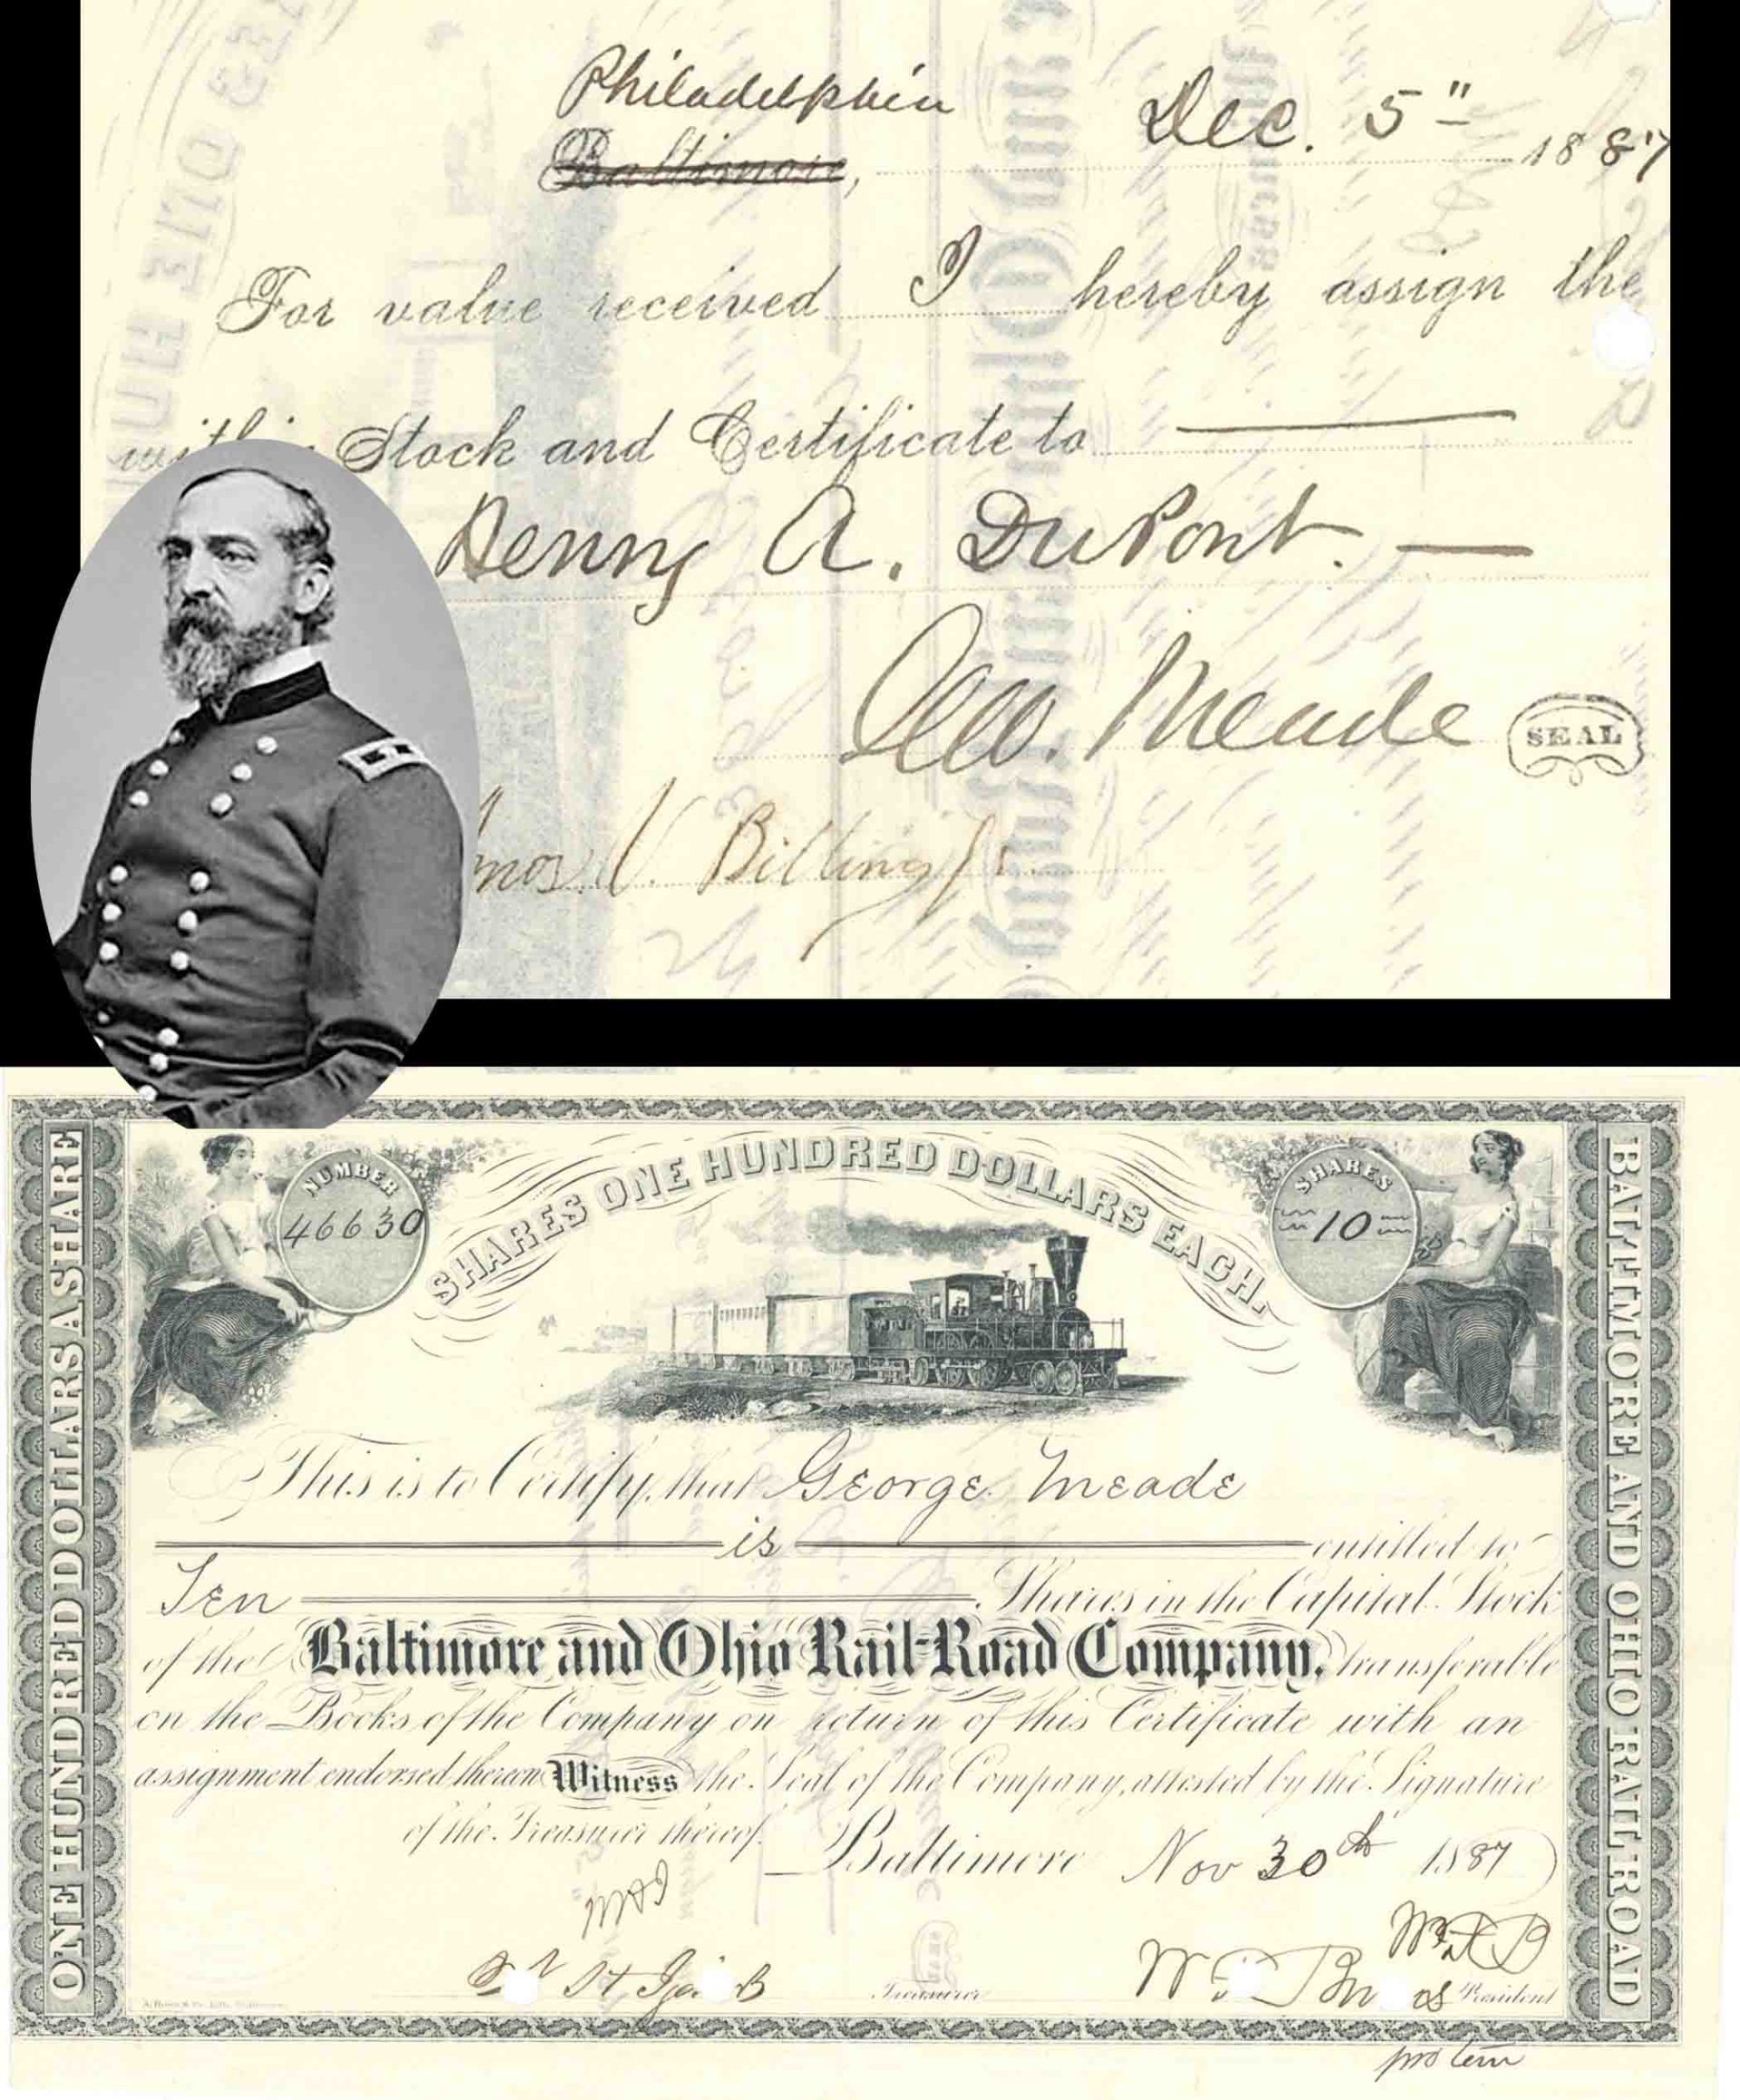 Philadelphia
Baltimore, Dec. 5" 1887
For value received I hereby assign the
within Stock and Certificate to
Henry A. DuPont.
Geo. Meade SEAL
V. Billings Jr.
ONE HUNDRED DOLLARS A SHARE
NUMBER
46630
SHARES ONE HUNDRED DOLLARS EACH.
SHARES
10
BALTIMORE AND OHIO RAIL ROAD
This is to Certify, that George Meade
is entitled to
Ten Shares in the Capital Stock
of the Baltimore and Ohio Rail-Road Company, transferable
on the Books of the Company on return of this Certificate with an
assignment endorsed thereon Witness the Seal of the Company, attested by the Signature
of the Treasurer thereof.
Baltimore Nov 30th 1887
Treasurer
President
pro tem